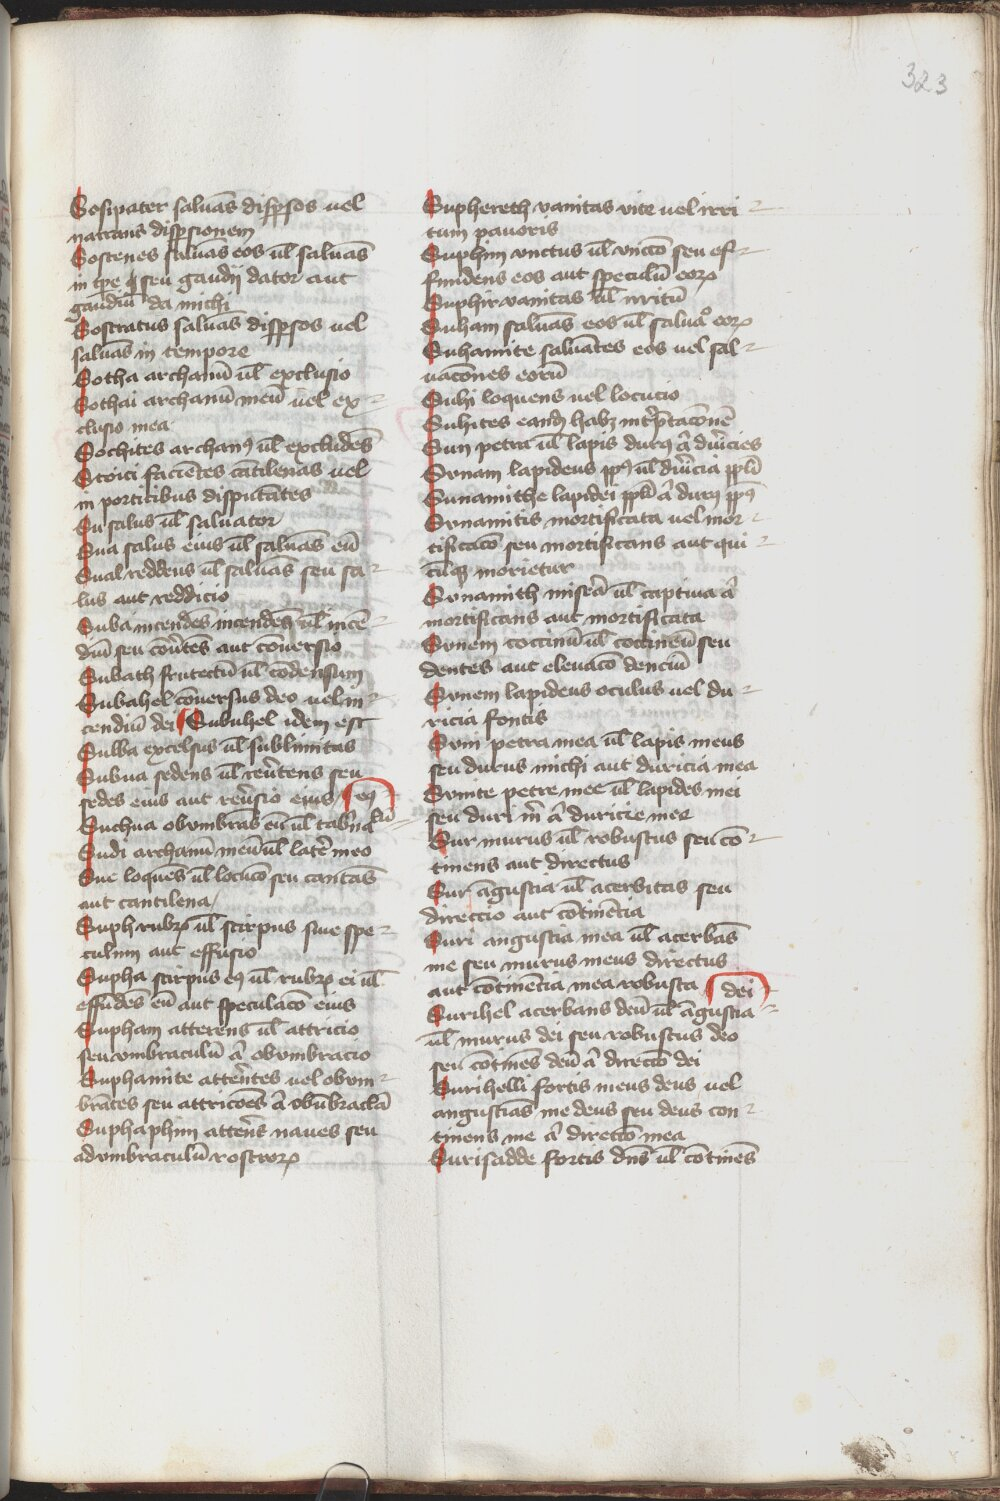 323
Sosipater saluās dispsos uel
narrans dispsionem
Sostenes saluās eos ul̄ saluās
in tpe seu gaudij dator aut
gaudiū da michi
Sostratus saluās dispsos uel
saluās in tempore
Sotha archanū ul̄ exclusio
Sothai archanū meū uel ex-
clusio mea
Sochites archanꝰ ul̄ excludēs
Stoici faciētes cātilenas uel
in porticibus disputātes
Su salus ul̄ saluator
Sua salus eius ul̄ saluās eū
Sual reddens ul̄ saluās seu sa-
lus aut reddicio
Suba incendēs incendēs ul̄ incē-
diū seu cōu̓tēs aut cōuersio
Subath frutectū ul̄ cōdensum
Subahel cōuersus deo uel in-
cendiū dei Subuhel idem est
Sulba excelsus ul̄ sublimitas
Subua sedens ul̄ reu̓tens seu
sedes eius aut reu̓sio eius eꝰ
Suchua obvmbrās eū ul̄ tab̓na-
Sudi archanū meū ul̄ lat̓e meo
Sue loquēs ul̄ locuco seu cantās
aut cantilena
Suph rubrꝝ ul̄ scirpus siue spe-
culum aut effusio
Supha scirpus eꝰ ul̄ rubrꝝ ei ul̄
effūdēs eū aut speculaco eius
Supham atterens ul̄ attricio
seu vmbraculū a̓ obvmbracio
Suphamite atter̓tes uel obvm-
brātes seu attricōes a̓ obūbracla
Suphaphim atter̓es naues seu
advmbraculū rostrorꝝ
Suphereth vanitas vite uel irri-
tum pauoris
Suphim vnctus ul̄ vncco seu ef-
fundens eos aut speculū eorꝝ
Suphir vanitas ul̄ irritū
Suham saluās eos ul̄ saluaᵒ eorꝝ
Suhamite saluātes eos uel sal-
uacōnes eorū
Suhi loquens uel locucio
Suhites eandꝫ habꝫ int̓ptacōnē
Sun petra ul̄ lapis durꝰ a̓ du̓icies
Sunam lapideus ppꝰ ul̄ du̓icia ppl̄i
Sunamithe lapidei ppl̄i a̓ durꝰ ppꝰ
Sunamitis mortificata uel mor-
tificaco seu mortificans aut qui-
cūqꝫ morietur
Sunamith misera̓ ul̄ captiua a̓
mortificans aut mortificata
Sunem coccinū ul̄ coccineū seu
dentes aut eleuaco denciū
Sunem lapideus oculus uel du-
ricia fontis
Suni petra mea ul̄ lapis meus
seu durus michi aut duricia mea
Sunite petre mee ul̄ lapides mei
seu duri m̄ a̓ duricie mee
Sur murus ul̄ robustus seu cō-
tinens aut directus
Sur āgustia ul̄ acerbitas seu
direccio aut cōtinētia
Suri angustia mea ul̄ acerbās
me seu murus meus directus
aut cōtinētia mea robusta dei
Surihel acerbans deū ul̄ āgustia
ul̄ murus dei seu robustus deo
seu cōtinēs deū a̓ direcco dei
Surihelli fortis meus deus uel
angustiās me deus seu deus con-
tinens me a̓ direcco mea
Surisadde fortis dn̄s ul̄ cōtinēs